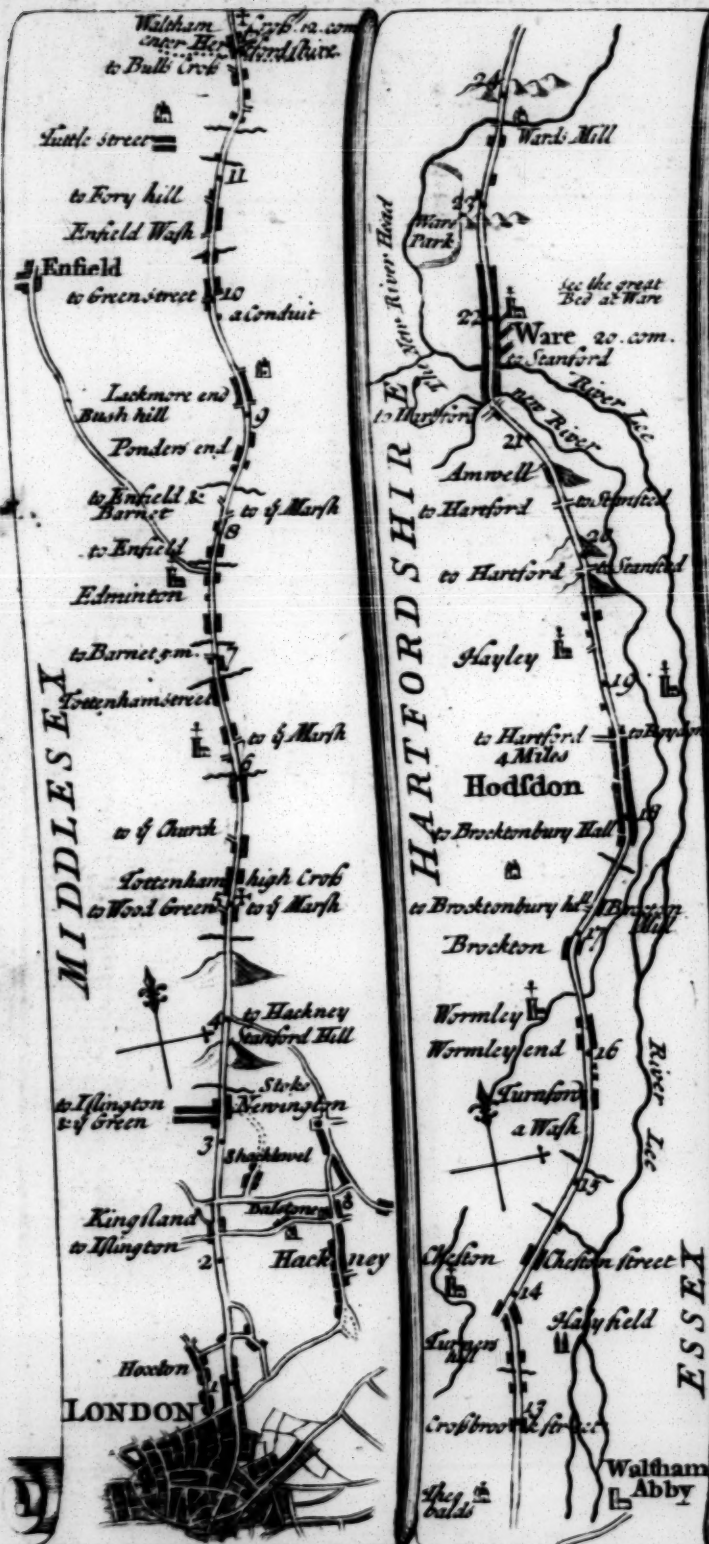 Waltham Croſs 12 com
enter Hertfordſhire
to Bulls Croſs
Tuttle Street
11
to Fory hill
Enfield Waſh
Enfield
to Green Street
10
a Conduit
Lackmore end
Bush hill
9
Ponders end
to Enfield &
Barnet
to ẏ Marſh
8
to Enfield
Edminton
to Barnet 5.m.
7
Tottenham street
to ẏ Marſh
6
to ẏ Church
Tottenham high Croſs
5
to Wood Green
to ẏ Marſh
MIDDLESEX
4
to Hackney
Stanford Hill
to Iſlington
& ẏ Green
Stoke
Newington
3
Shacklewel
Kingsland
Dalstone
to Iſlington
2
Hackney
Hoxton
1
LONDON
1
24
Wards Mill
23
Ware
Park
New River Head
see the great
Bed at Ware
22
Ware 20. com.
to Stanford
River Lee
to Hartford
new River
21
Amwell
to Hartford
to Stansted
20
to Hartford
to Stansted
HARTFORDSHIRE
Hayley
19
to Hartford
4 Miles
to Roydon
Hodſdon
18
to Brocktonbury Hall
to Brocktonbury hall
Broxton
Mill
17
Brockton
Wormley
Wormley end
16
River Lee
Turnford
a Waſh
15
Cheſton
Cheſton ſtreet
14
Halyfield
Turners
hill
ESSEX
13
Croſbrook ſtreet
Theo
balds
Waltham
Abby